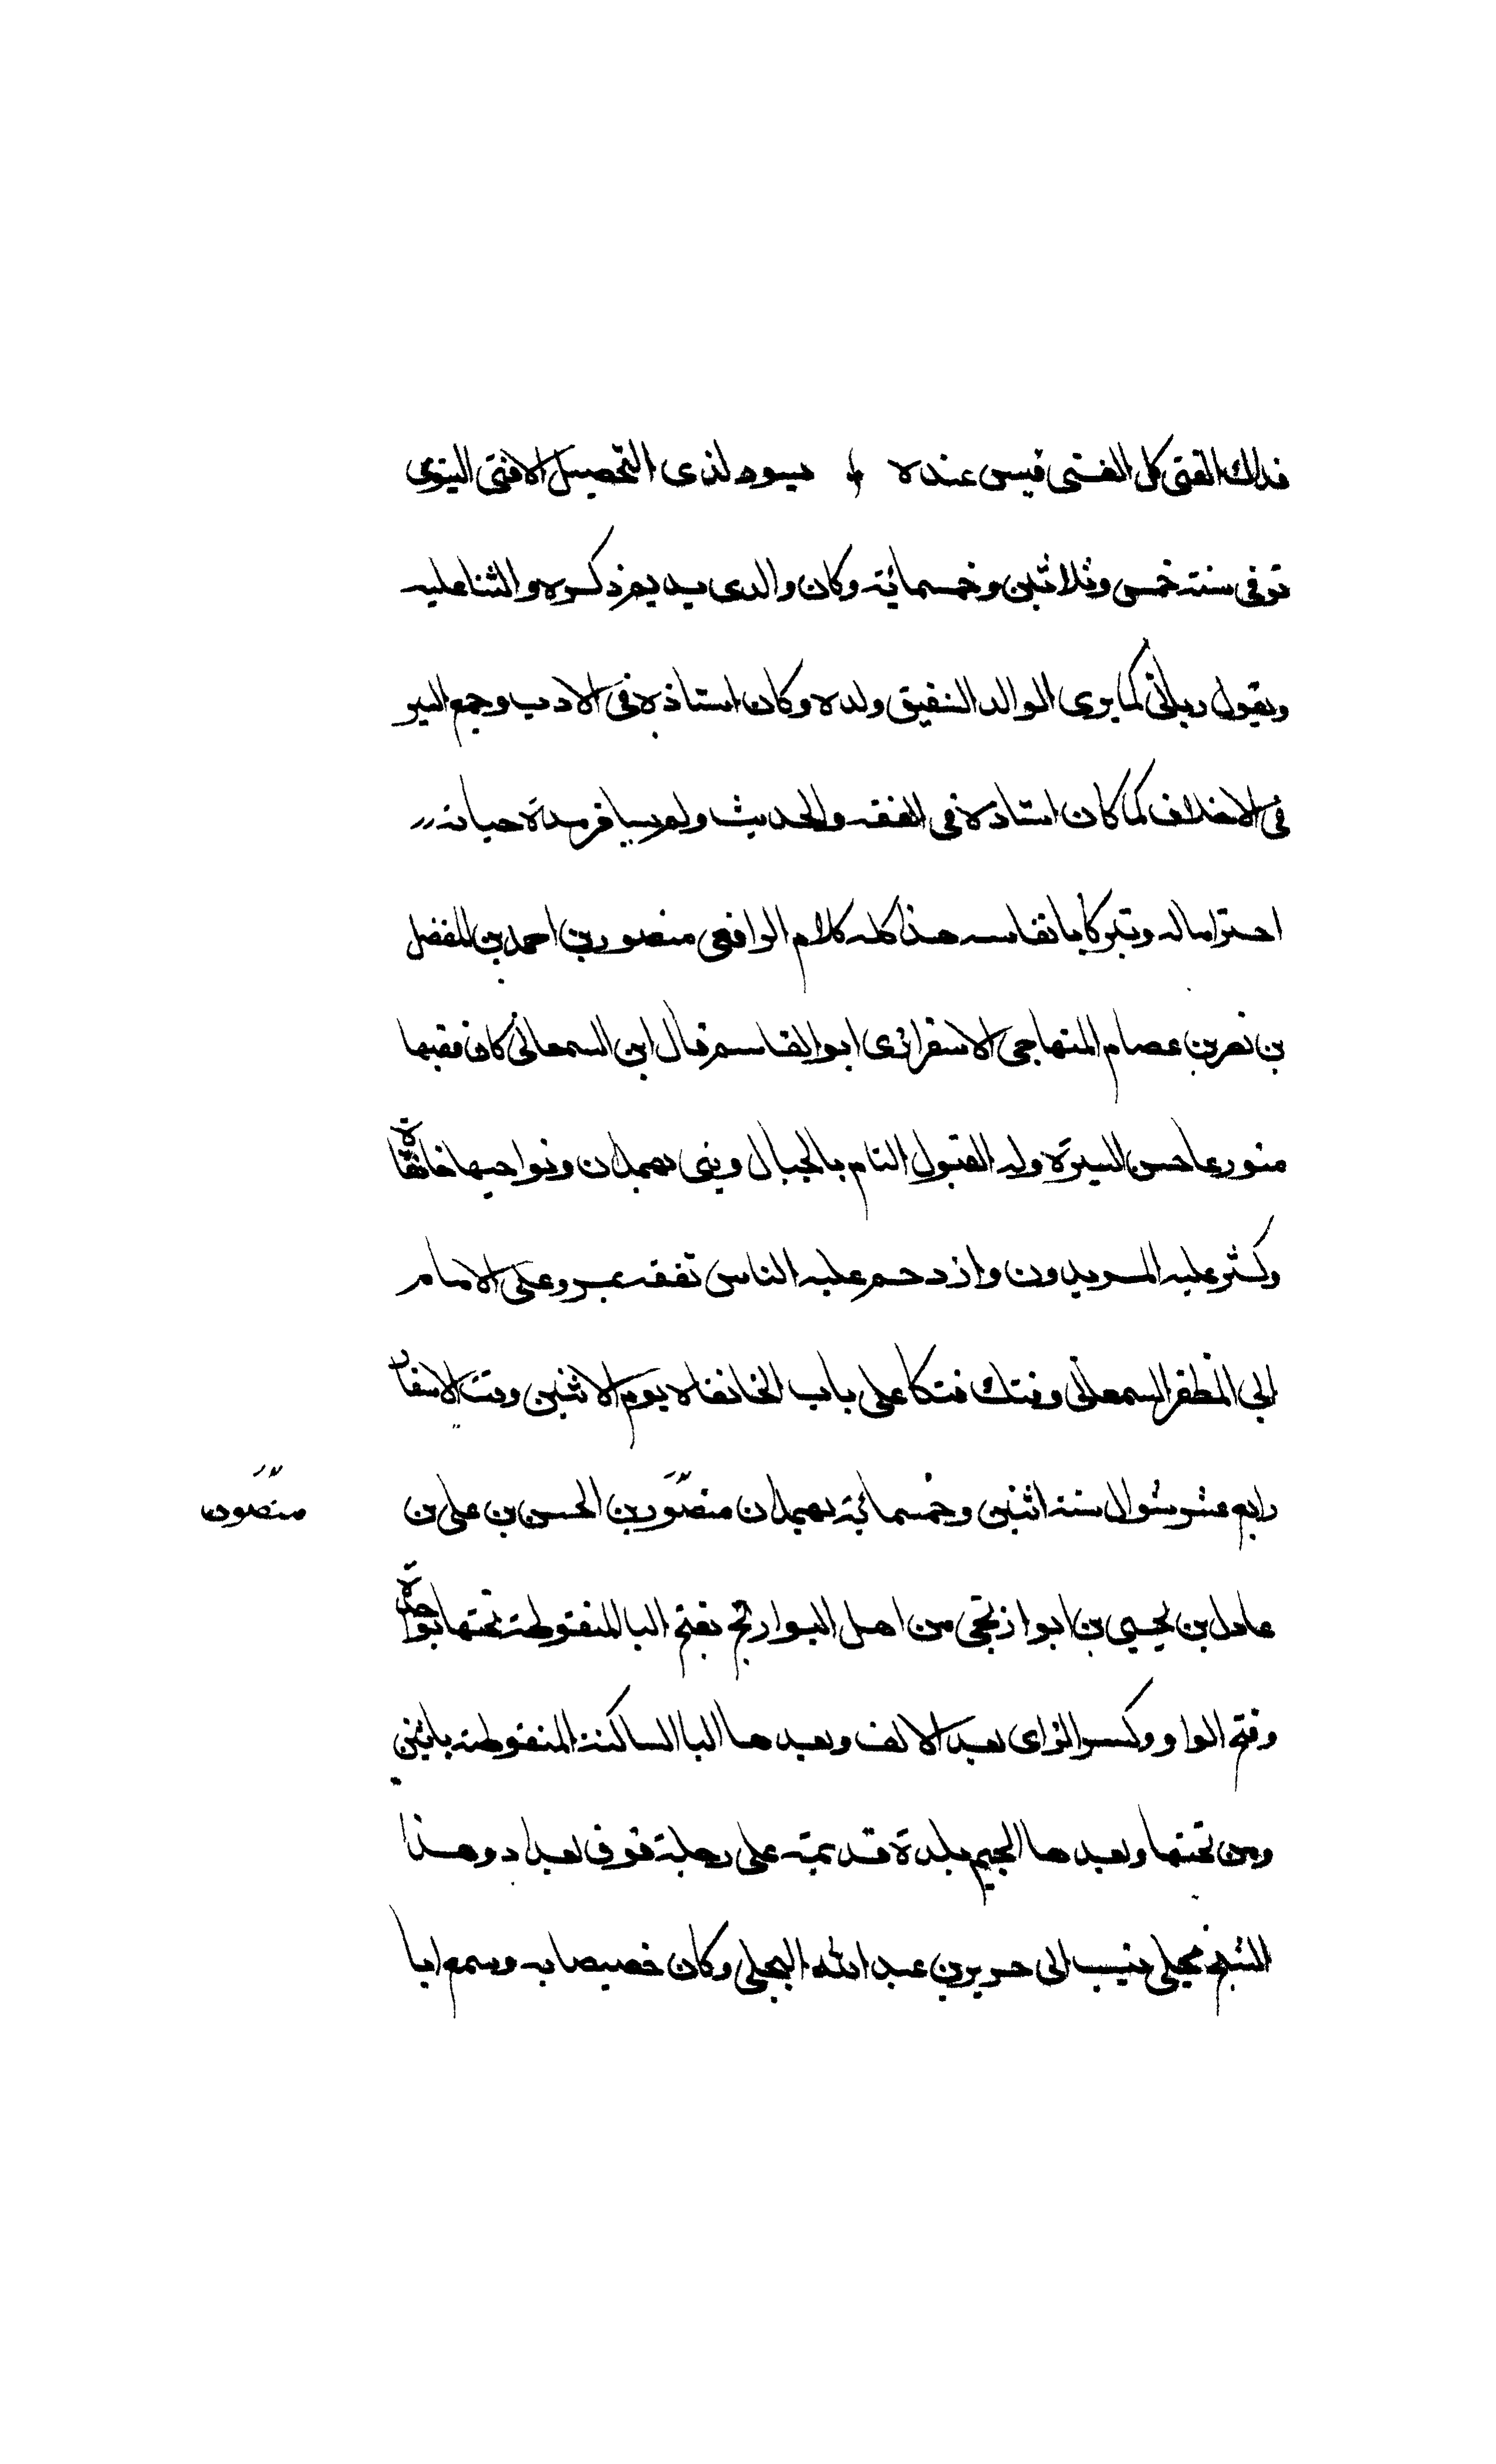 فذلك الفتى كل الفتى فيس عنده ٯ يسوه لذى التحصيل الافتى اليتوى
توفى سنة خمس وثلاثين وخمسمائة وكان والدى يديم ذكره والثنا عليه
ويقول ربانى كما يربى الوالد الشفيق ولده وكان استاذه فى الادب وجمع السير
فى الاخلاف كما كان استاذه فى الفقه والحديث ولم يسافر مدة حياته
احتراما له وتبركا بانفاسه هذا كله كلام الرافعى منصور بن احمد بن المفضل
بن نصر بن عصام المنهاجى الاسفرائنى ابو القاسم قال ابن السمعانى كان فقيها
متورعا حسن السيرة وله القبول التام بالجبال وبنى بهمدان ونواحيها خانقاة
وكثر عليه المريدون وازدحم عليه الناس تفقه بمرو على الامام
ابى المظفر السمعانى وفتك فتكا على باب الخانقاه يوم الاثنين وقت الاسفار
رابع عشر شوال سنة اثنين وخمسمائة بهمدان منصور بن الحسن بن على بن
منصور
عادل بن يحيى بن ابوازيجى من اهل البوازيج بفتح البا المنقوطة تحتها بواحدة
وفتح الواو وكسر الزاى بعد الالف وبعدها اليا الساكنة المنقوطة باثنين
ومن تحتها وبعدها الجيم بلدة قديمة على دجلة فوق بغداد وهذا
الشيخ بجيلى ينسب الى جرير بن عبد الله البجلى وكان خصيصا به وسمع ابا